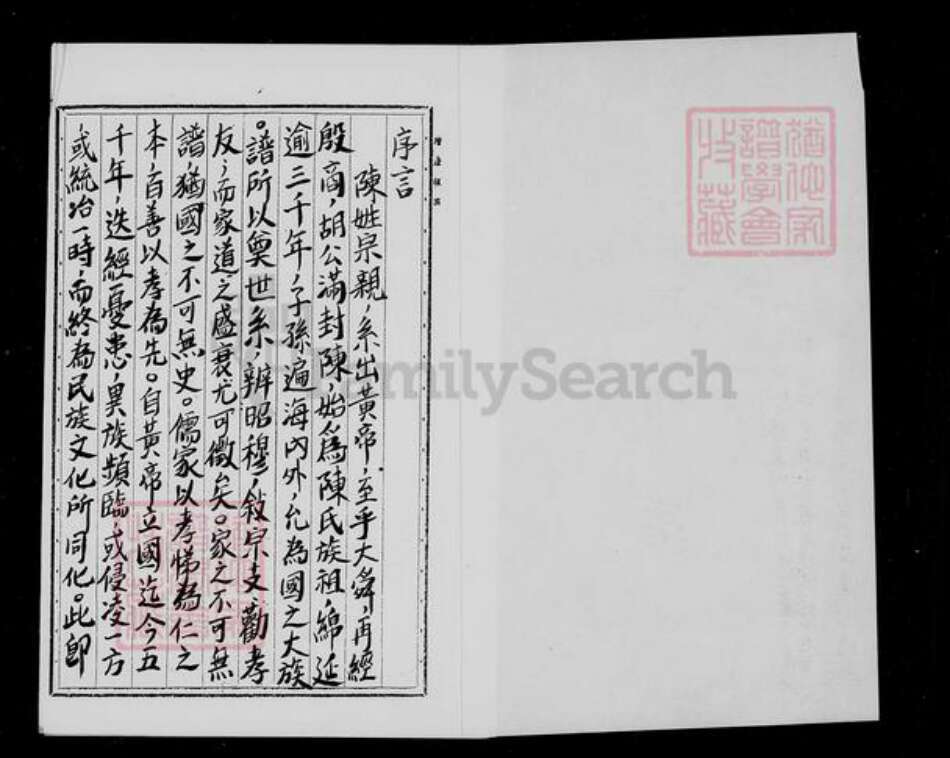 序言
陳姓宗親，系出黃帝，至乎大舜，再經
殷商，胡公滿封陳，始為陳氏族祖，綿延
逾三千年，子孫遍海內外，允為國之大族
。譜所以奠世系，辨昭穆，敘宗支，勸孝
友，而家道之盛衰尤可徵矣。家之不可無
譜，猶國之不可無史。儒家以孝悌為仁之
本，百善以孝為先。自黃帝立國迄今五
千年，迭經憂患，異族頻臨，或侵凌一方
，或統治一時，而終為民族文化所同化。此即
猶他家
譜學會
收藏
FamilySearch